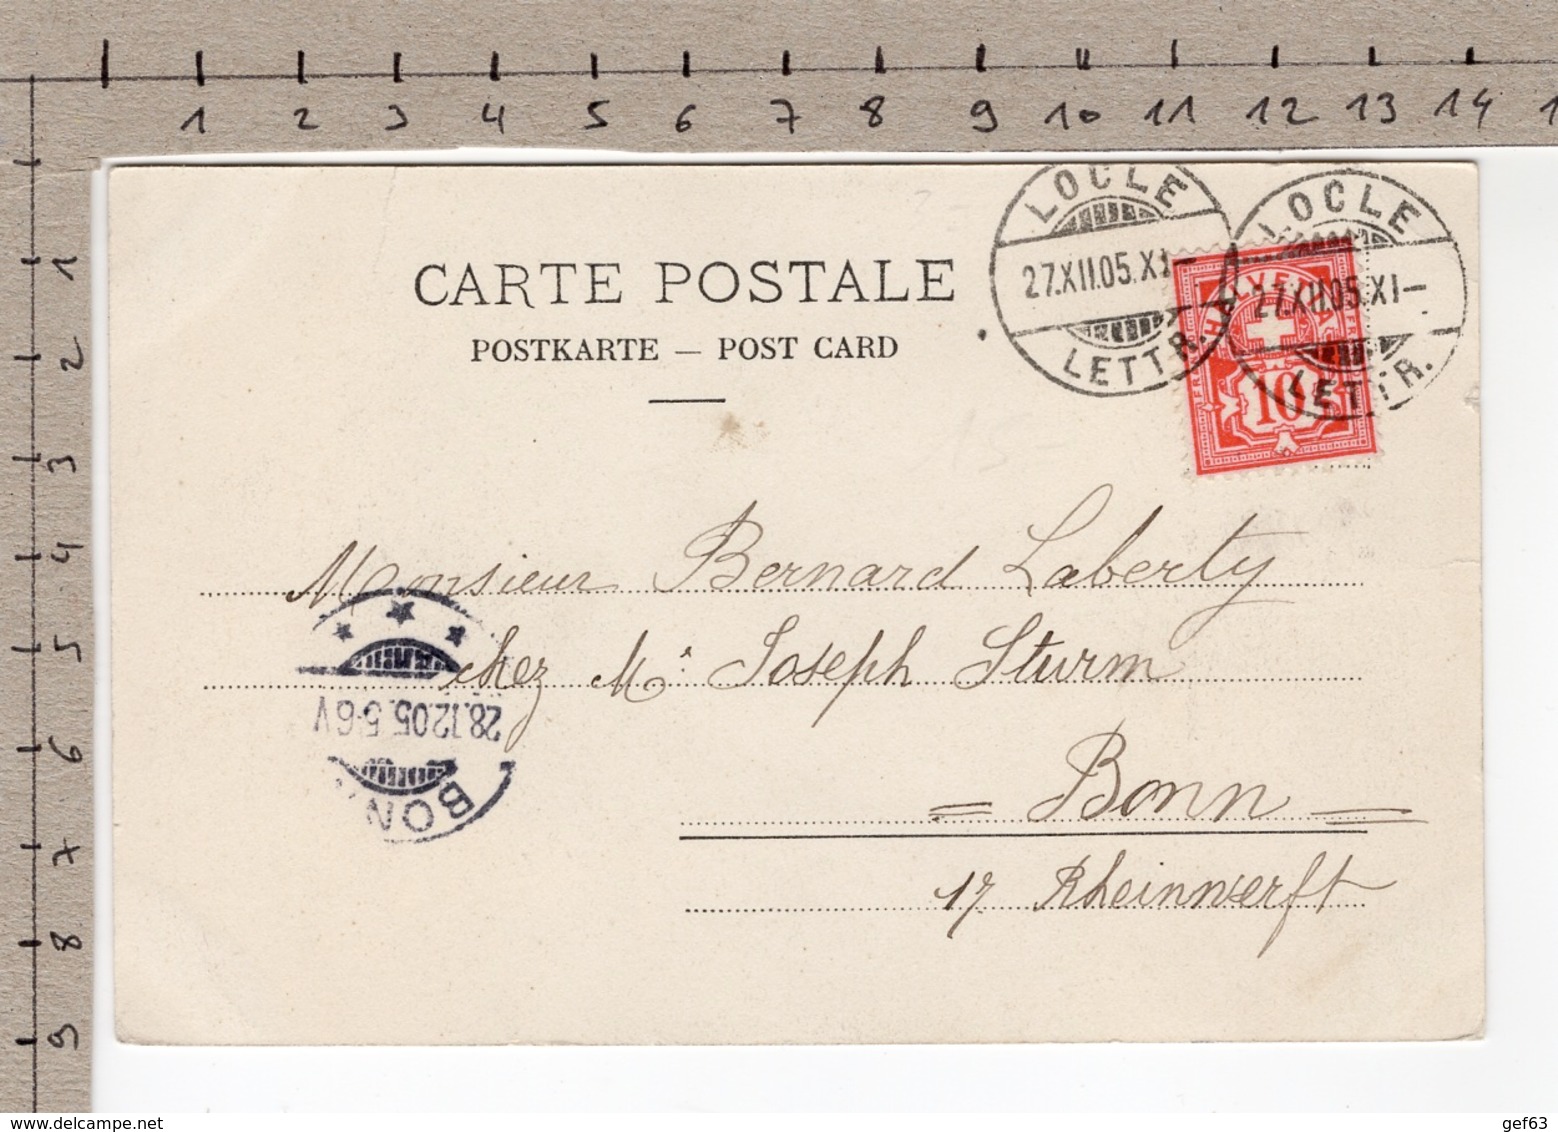 1 2 3 4 5 6 7 8 9 10 11 12 13 14 1
1
2
3
4
5
6
7
8
9
LOCLE
27.XII.05.XI—
LETTR.
LOCLE
27.XII.05.XI—
LETTR.
HELVETIA
10
CARTE POSTALE
POSTKARTE — POST CARD
Monsieur Bernard Laberty
chez Mr Joseph Sturm
= Bonn =
17 Rheinwerft
28.12.05.5-6V
BONN
delcampe.net
gef63